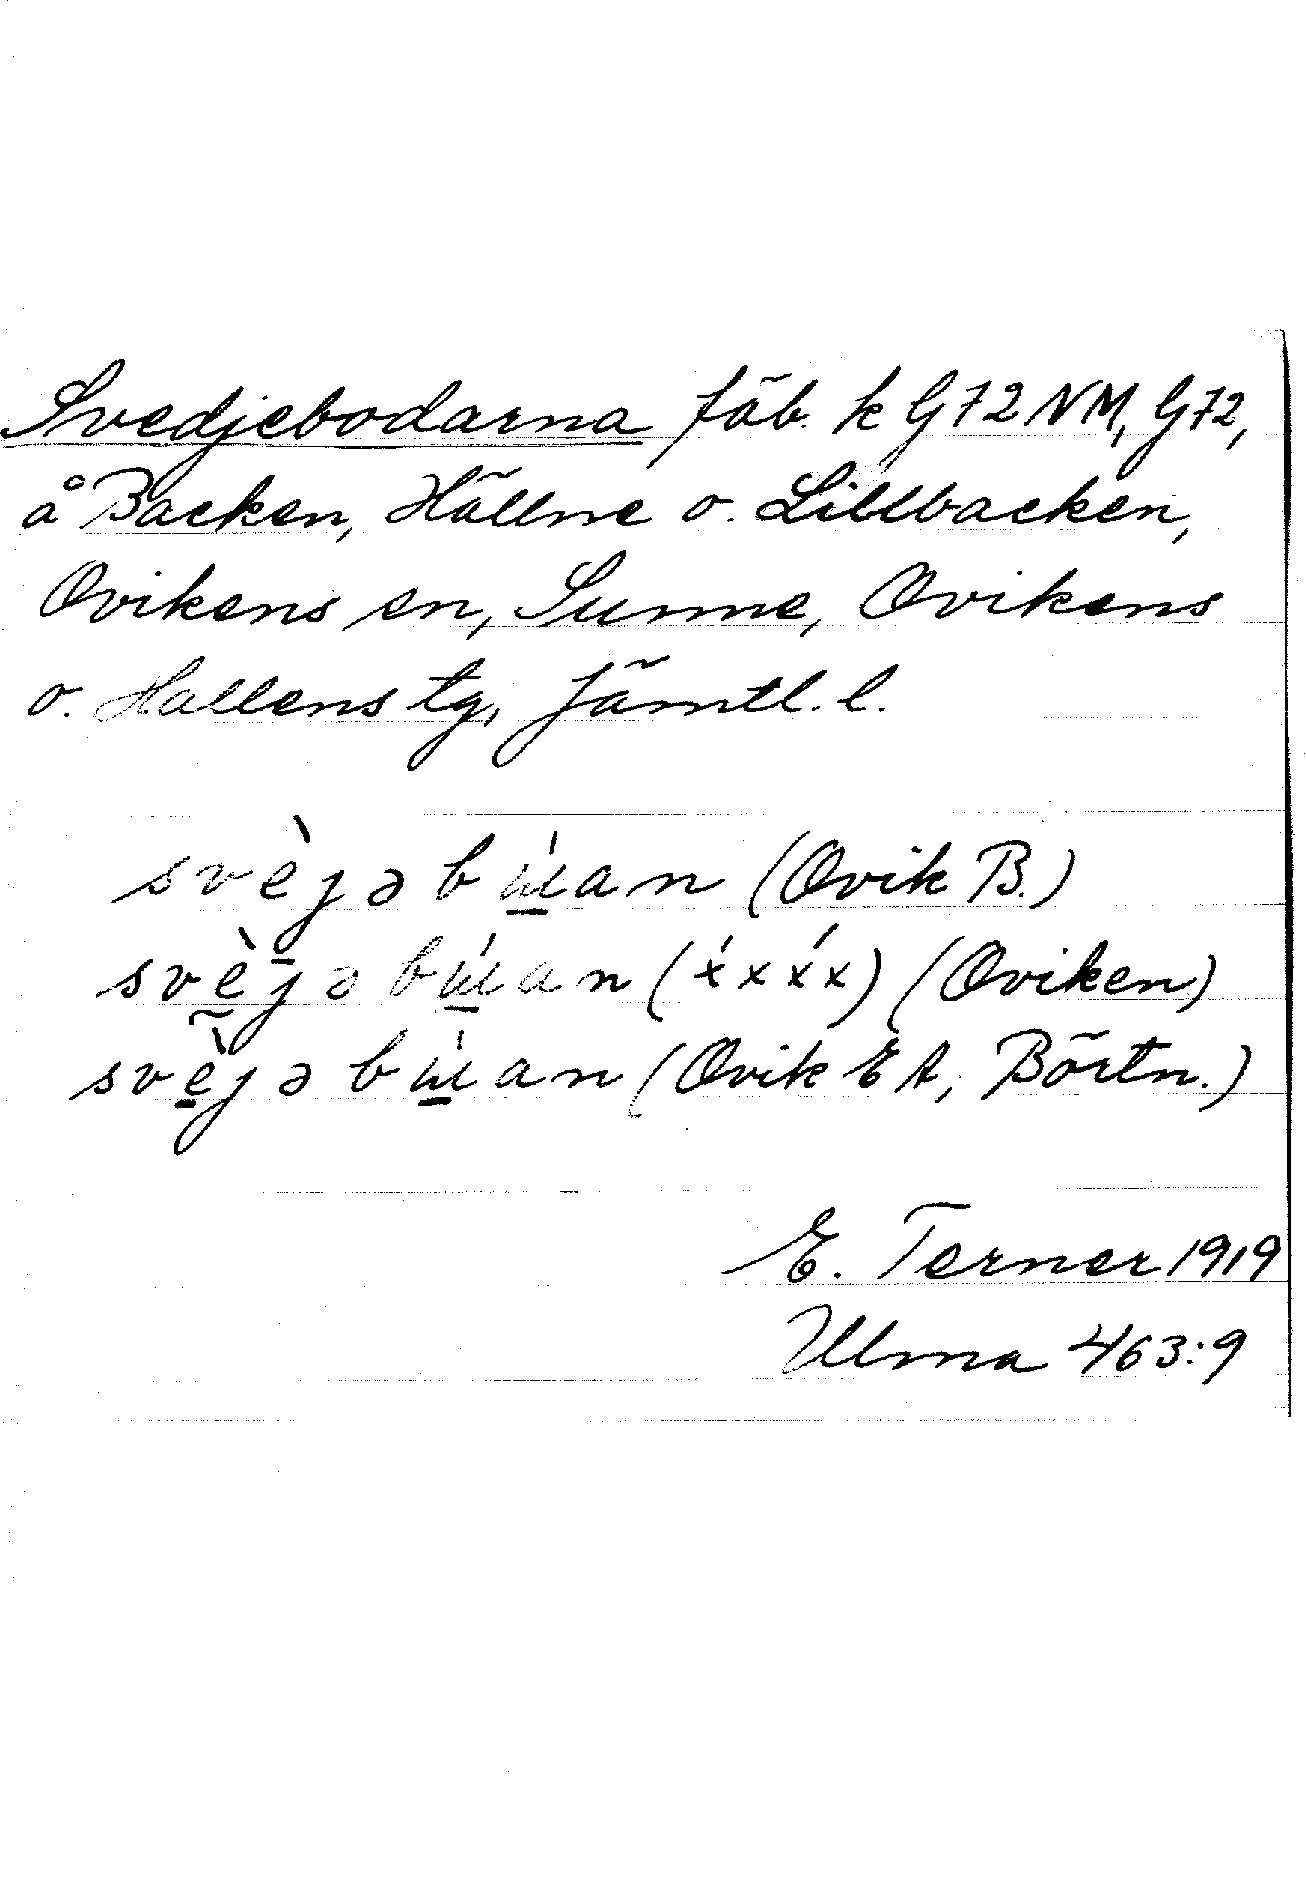 Svedjebodarna fäb. k G72NM, G72,
å Backen, Hällne o. Lillbacken,
Ovikens sn, Sunne, Ovikens
o. Hallens tg, Jämtl. l.
svèjəbɯ̲́an (Ovik B.)
svè̲jəbɯ̲́an (x́xx́x) (Oviken)
svè̲̃jəbɯ̲́an (Ovik EA, Börtn.)
E. Terner 1919
Ulma 463:9